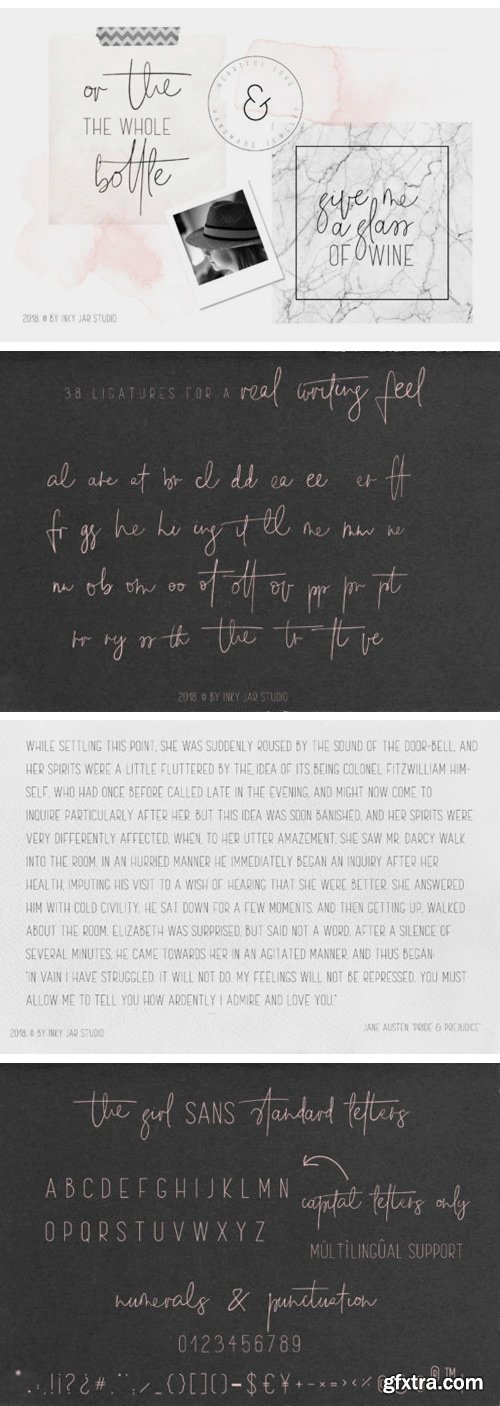 or the
THE WHOLE
bottle
BEAUTIFUL LOVE
&
HANDMADE JEWELRY
give me
a glass
OF WINE
2018, © BY INKY JAR STUDIO
38 LIGATURES FOR A real writing feel
al are at br cl dd ea ee er ft
fr gg he hi ing it ll me mm ne
nn ob om oo ot ott ov pp pr pt
rr ry ss th the tr tt ve
2018, © BY INKY JAR STUDIO
WHILE SETTLING THIS POINT, SHE WAS SUDDENLY ROUSED BY THE SOUND OF THE DOOR-BELL, AND
HER SPIRITS WERE A LITTLE FLUTTERED BY THE IDEA OF ITS BEING COLONEL FITZWILLIAM HIM-
SELF, WHO HAD ONCE BEFORE CALLED LATE IN THE EVENING, AND MIGHT NOW COME TO
INQUIRE PARTICULARLY AFTER HER. BUT THIS IDEA WAS SOON BANISHED, AND HER SPIRITS WERE
VERY DIFFERENTLY AFFECTED, WHEN, TO HER UTTER AMAZEMENT, SHE SAW MR. DARCY WALK
INTO THE ROOM. IN AN HURRIED MANNER HE IMMEDIATELY BEGAN AN INQUIRY AFTER HER
HEALTH, IMPUTING HIS VISIT TO A WISH OF HEARING THAT SHE WERE BETTER. SHE ANSWERED
HIM WITH COLD CIVILITY. HE SAT DOWN FOR A FEW MOMENTS, AND THEN GETTING UP, WALKED
ABOUT THE ROOM. ELIZABETH WAS SURPRISED, BUT SAID NOT A WORD. AFTER A SILENCE OF
SEVERAL MINUTES, HE CAME TOWARDS HER IN AN AGITATED MANNER, AND THUS BEGAN:
"IN VAIN I HAVE STRUGGLED. IT WILL NOT DO. MY FEELINGS WILL NOT BE REPRESSED. YOU MUST
ALLOW ME TO TELL YOU HOW ARDENTLY I ADMIRE AND LOVE YOU."
JANE AUSTEN "PRIDE & PREJUDICE"
2018, © BY INKY JAR STUDIO
the girl SANS standard letters
A B C D E F G H I J K L M N
O P Q R S T U V W X Y Z
capital letters only
MÛLTÌLINGÛAL SUPPORT
numerals & punctuation
0 1 2 3 4 5 6 7 8 9
* . , : ; ! ¡ ? ¿ # / _ ( ) [ ] { } - $ € ¥ + - × = > < % @ ® ™
gfxtra.com